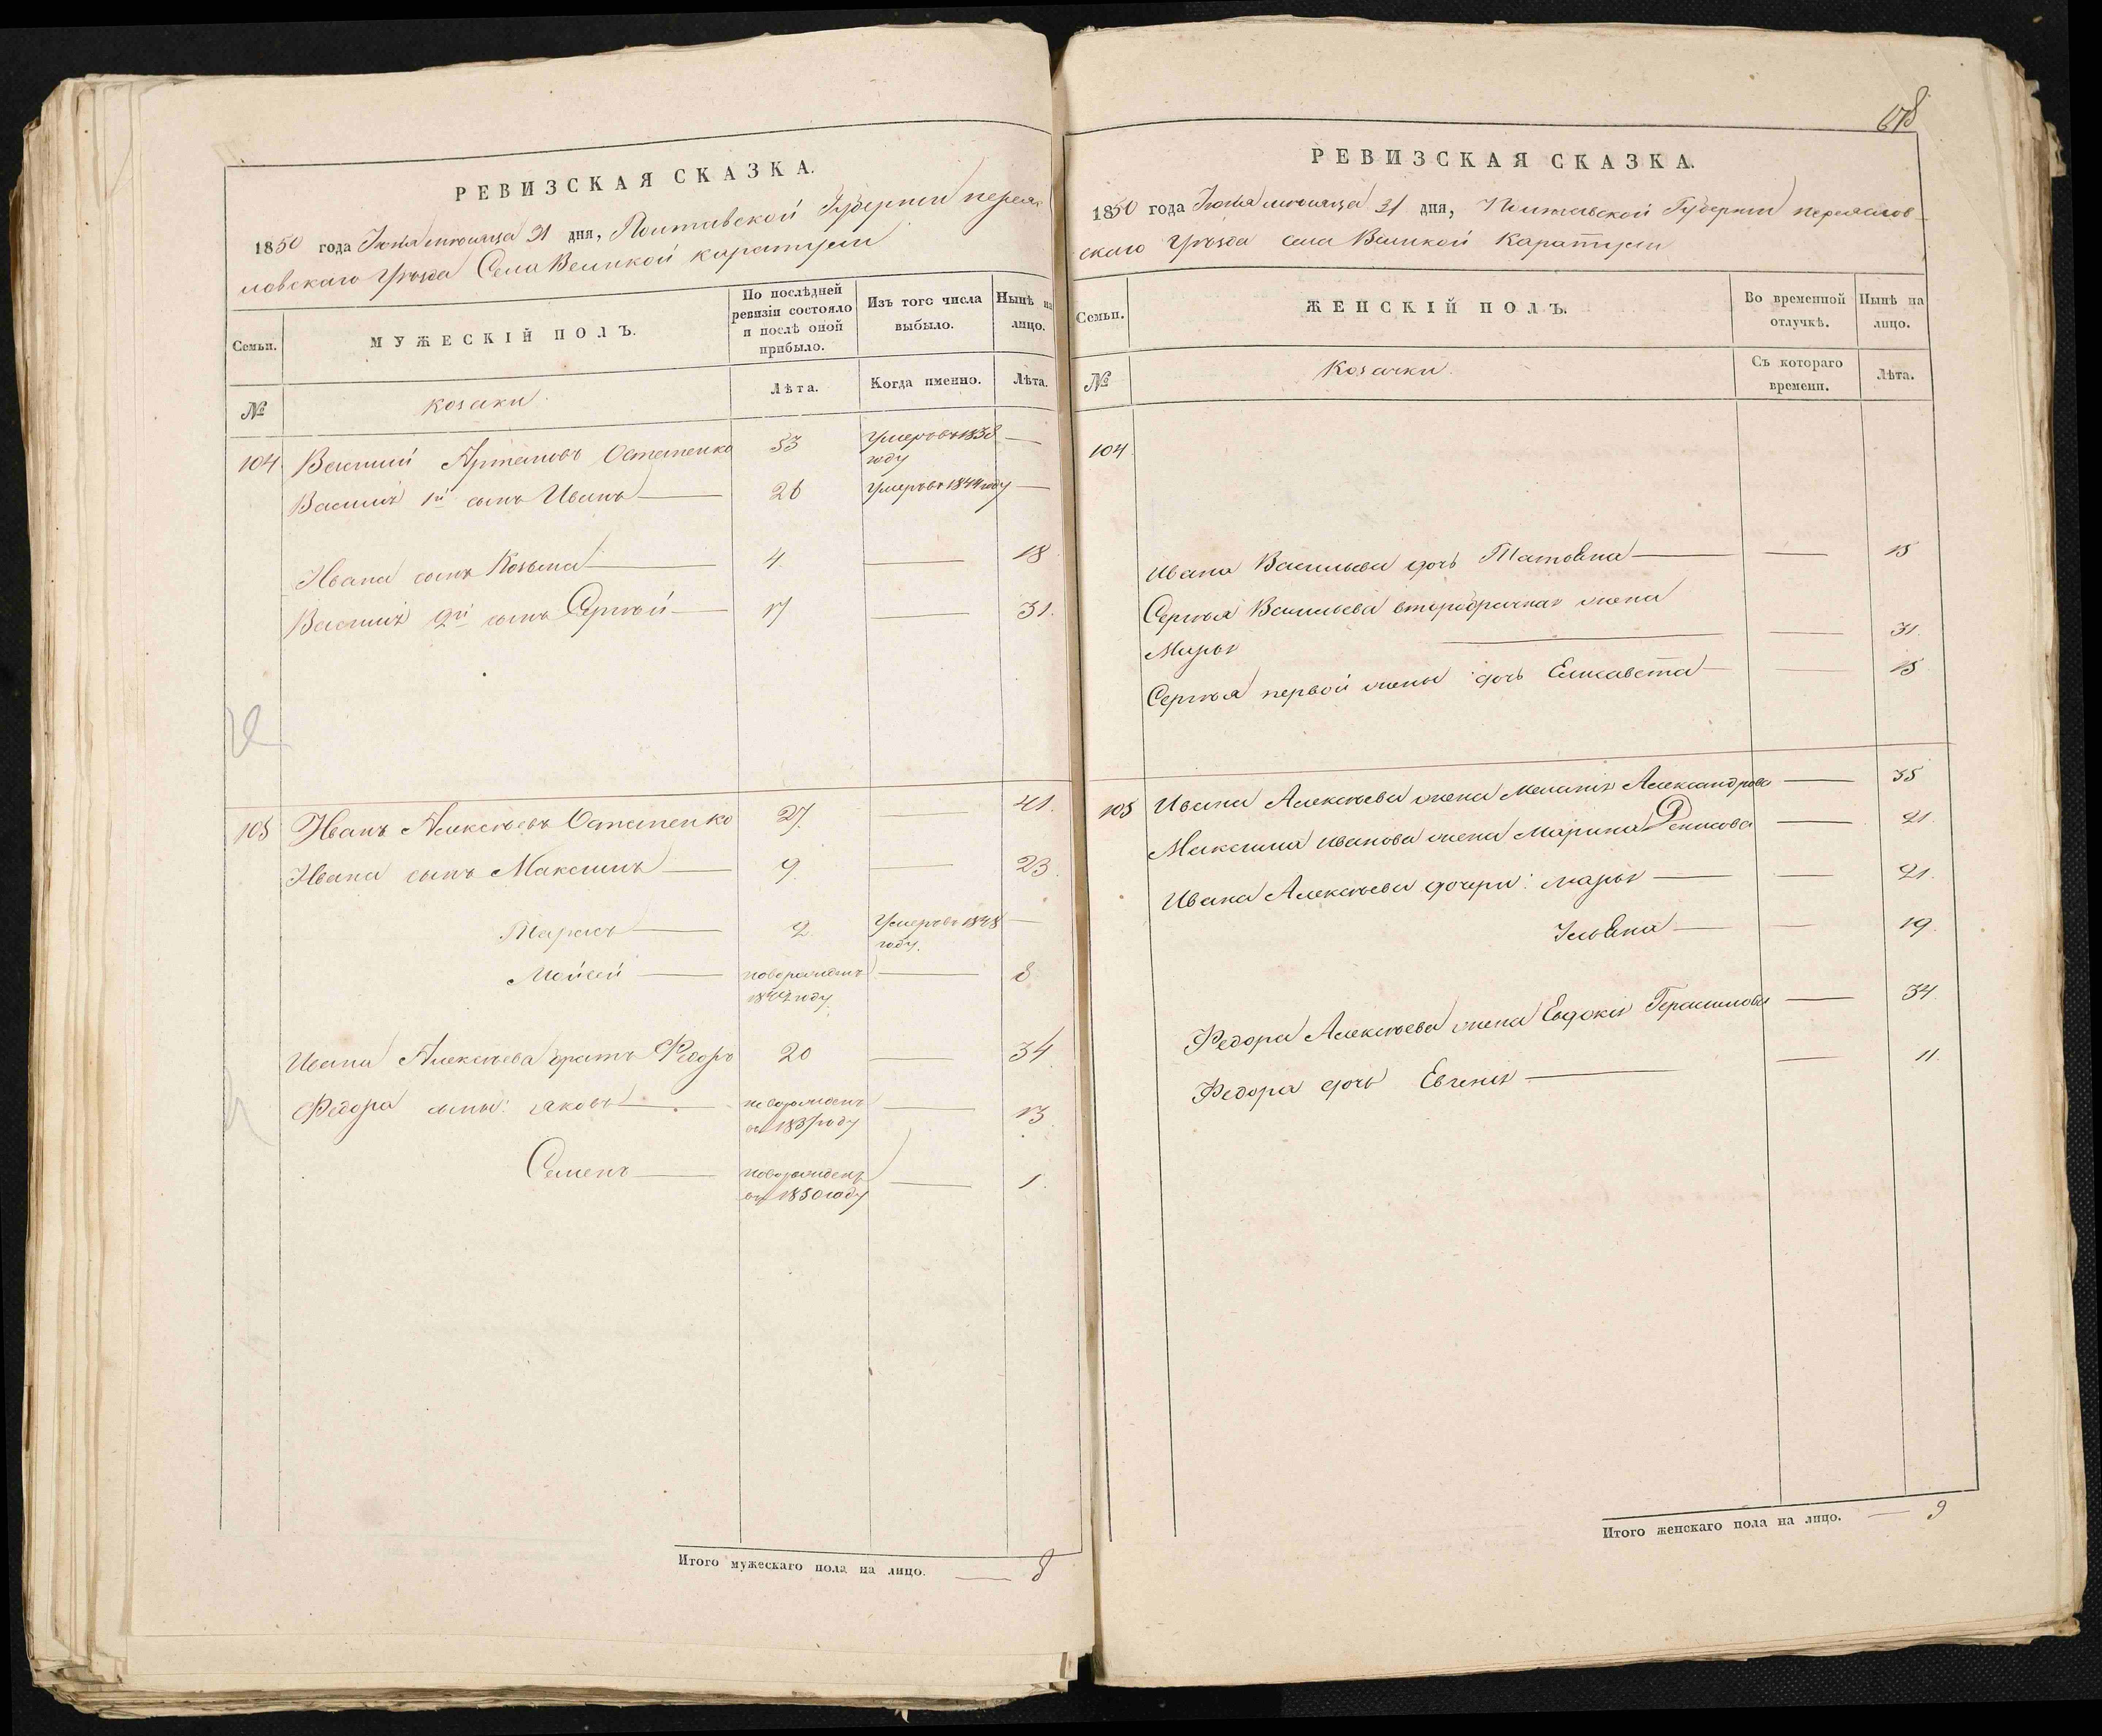 РЕВИЗСКАЯ СКАЗКА.
1850 года Іюля мѣсяца 31 дня, Полтавской Губерніи переяс
ловскаго Уѣзда Села Великой каратули
Семьи.
МУЖЕСКІЙ ПОЛЪ.
По послѣдней ревизіи состояло и послѣ оной прибыло.
Изъ того числа выбыло.
Нынѣ на лицо.
№
козаки.
Лѣта.
Когда именно.
Лѣта.
104 Василий Артемовъ Остапенко 53 Умеръ въ 1838 году —
Василія 1й сынъ Иванъ — 26 Умеръ въ 1844 году —
Ивана сынъ Козьма — 4 — 18
Василія 2й сынъ Сергѣй — 17 — 31.
105 Иванъ Алексѣевъ Остапенко 27. — 41.
Ивана сынъ Максимъ — 9. — 23.
Тарасъ — 2. Умеръ въ 1848 году. —
Мойсей — новорожденъ 1842 году — 8
Ивана Алексѣева братъ Федоръ 20 — 34
Федора сыны: Яковъ — новорожденъ въ 1837 году — 13
Семенъ — новорожденъ въ 1850 году — 1.
Итого мужескаго пола на лицо. — 8
678
РЕВИЗСКАЯ СКАЗКА.
1850 года Іюля мѣсяца 31 дня, Полтавской Губерніи переяслов-
скаго Уѣзда села Великой Каратули
Семьи.
ЖЕНСКІЙ ПОЛЪ.
Во временной отлучкѣ.
Нынѣ на лицо.
№
Козачки.
Съ котораго времени.
Лѣта.
104
Ивана Васильева дочь Татьяна — — 15
Сергѣя Васильева второбрачная жена
Марья — — 31.
Сергѣя первой жены дочь Елисавета — — 15
105 Ивана Алексѣева жена Меланія Александрова — 35
Максима Иванова жена Марина Денисова — 21.
Ивана Алексѣева дочери: Марья — — 21.
Ульяна — — 19.
Федора Алексѣева жена Евдокія Герасимова — 34.
Федора дочь Евгенія — — 11.
Итого женскаго пола на лицо. — 9